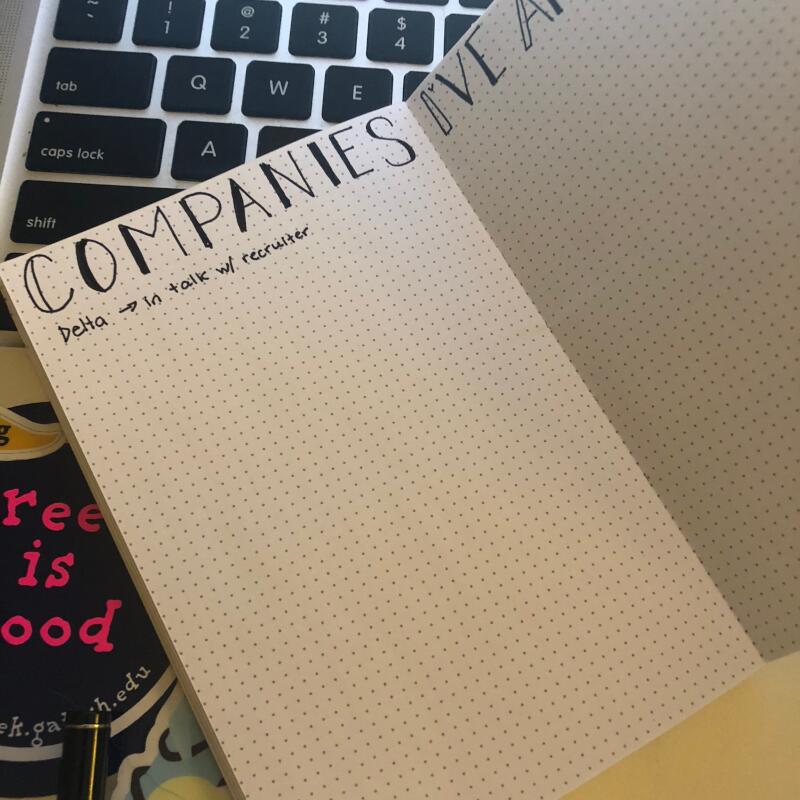 ~
`
!
1
@
2
#
3
$
4
tab
Q
W
E
caps lock
A
shift
COMPANIES I'VE A
Delta → in talk w/ recruiter
g
ree
is
ood
ek.gat h.edu